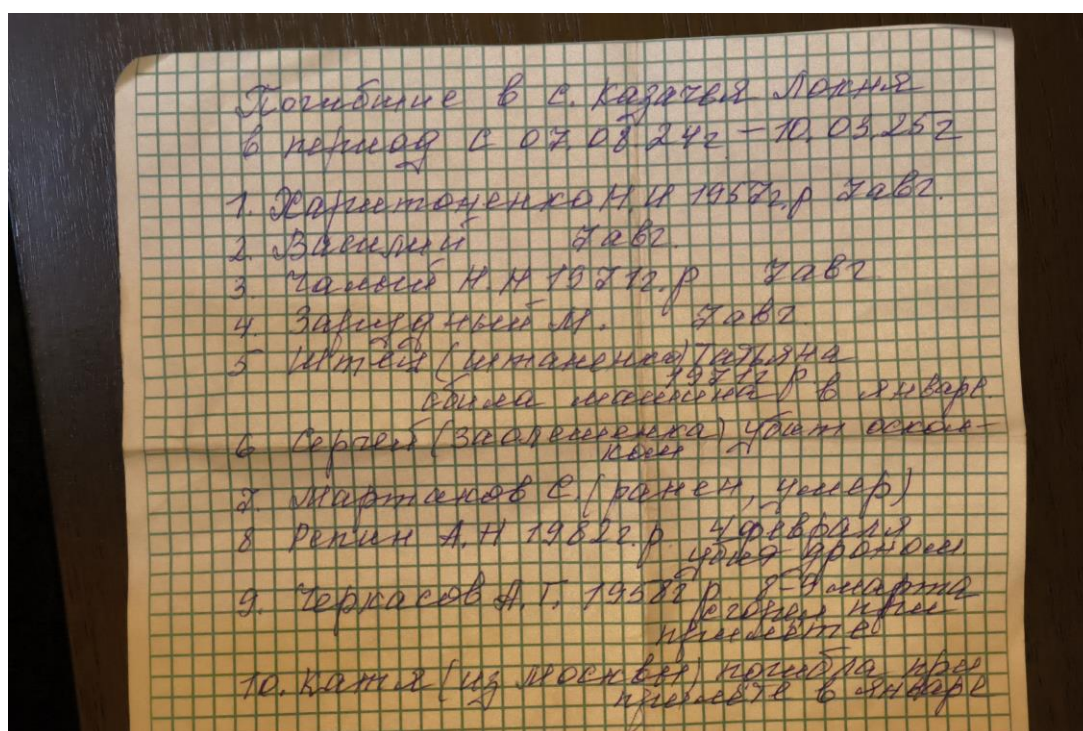 Погибшие в с. Казачья Локня
в период с 07.08.24г – 10.03.25г
1. Харитоненко Н И 1957г.р 7авг.
2. Василий 7авг.
3. Чалый Н.Н 1971г.р 7авг
4. Зарудный М. 7авг.
5 Штей (Штаненко) Татьяна
1971г р
сбила машина в январе.
6 Сергей (Заолешенка) убит оскол-
ком
7. Мартаков С. (ранен, умер)
8 Репин А.Н 1982г.р. 4 февраля
убит дроном
9. Черкасов А.Г. 1958г р. 8-9 марта
сгорел при
прилёте
10. Катя (из Москвы) погибла при
прилёте в январе